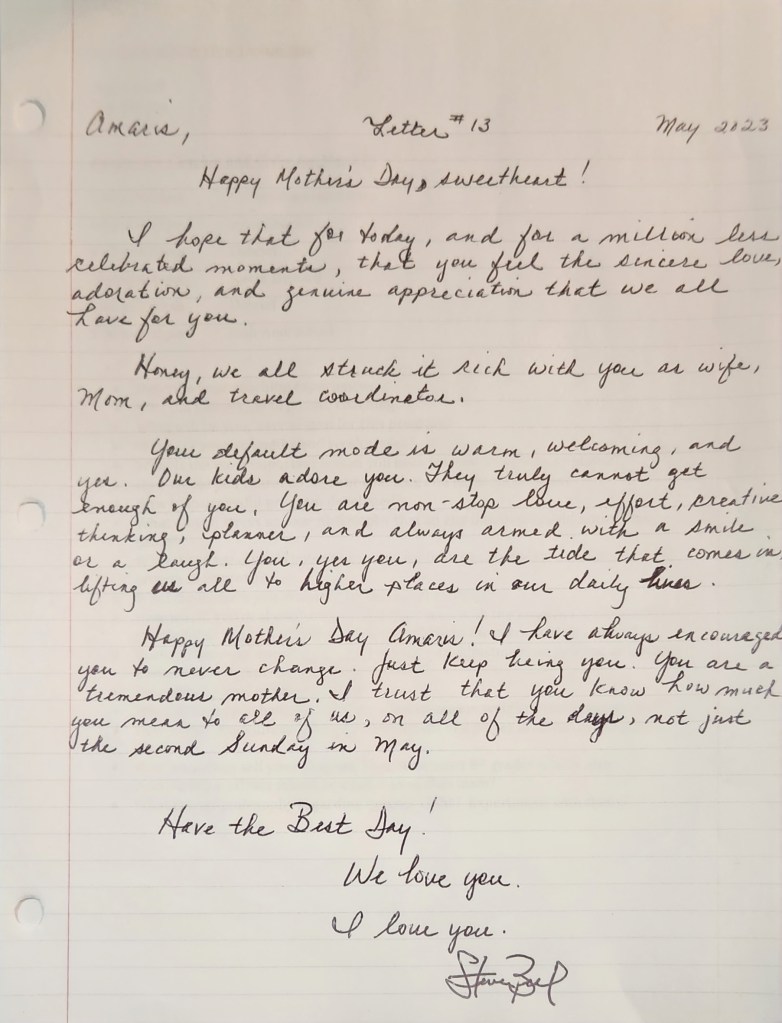 Amaris, Letter #13 May 2023
Happy Mother's Day, sweetheart!
I hope that for today, and for a million less
celebrated moments, that you feel the sincere love,
adoration, and genuine appreciation that we all
have for you.
Honey, we all struck it rich with you as wife,
Mom, and travel coordinator.
Your default mode is warm, welcoming, and
yes. Our kids adore you. They truly cannot get
enough of you. You are non-stop love, effort, creative
thinking, planner, and always armed with a smile
or a laugh. You, yes you, are the tide that comes in,
lifting us all to higher places in our daily lives.
Happy Mother's Day Amaris! I have always encouraged
you to never change. Just keep being you. You are a
tremendous mother. I trust that you know how much
you mean to all of us, on all of the days, not just
the second Sunday in May.
Have the Best Day!
We love you.
I love you.